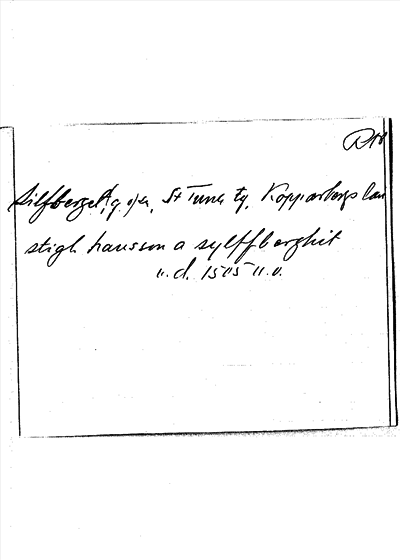 Silfberget, g. o/n, St Tuna tg, Kopparbergs län
stigh hansson a sylffberghit
u. d. 1505 u. o.